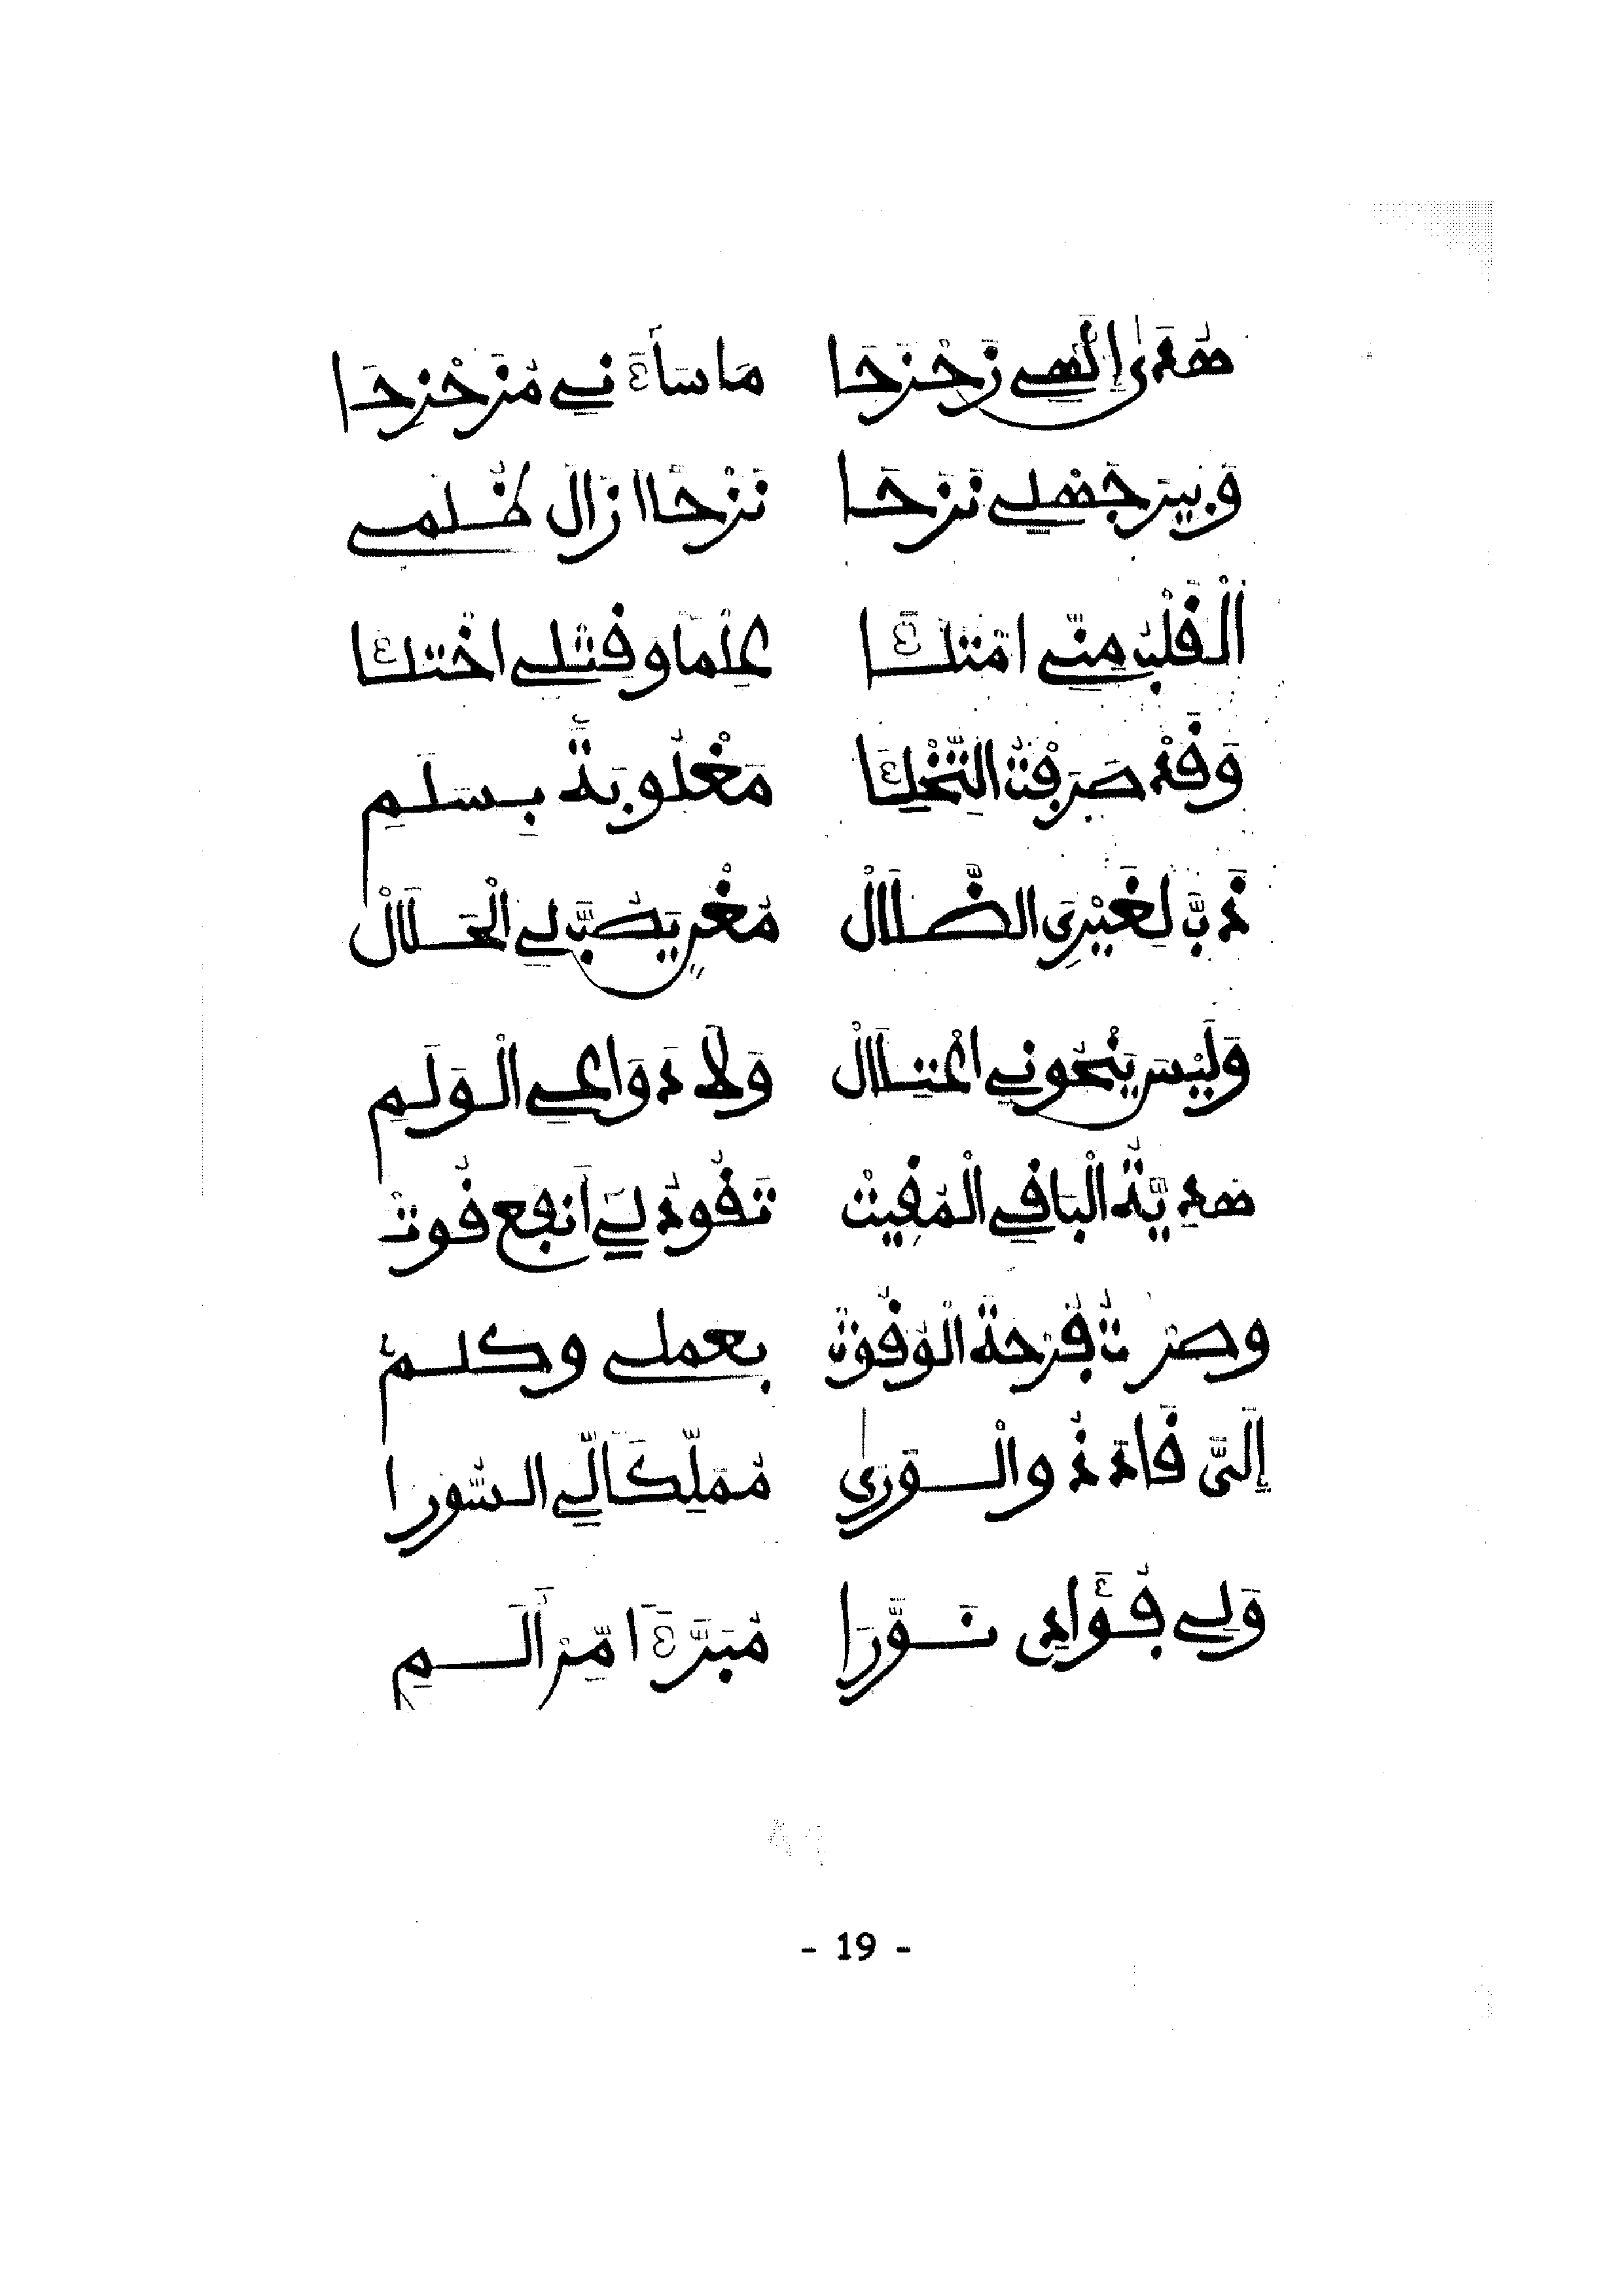 هُدَى إِلَهِي زَحْزَحَا مَا سَاءَنِي مُزَحْزِحَا
وَبِيرَ جَهْلِي نَزَحَا نَزْحًا أَزَالَ ظُلَمِي
الْقَلْبُ مِنِّي امْتَلَأَ عِلْمًا وَقَتْلِي اخْتَلَأَ
وَقَدْ صَرَفْتُ التِّكْلَأَ مَغْلُوبَةً بِسَلَمِ
ذَبَّ لِغَيْرِيَ الضَّلَالْ مُغْنٍ يَصُبُّ لِي الْحَلَالْ
وَلَيْسَ يَنْحُونِي اعْتِلَالْ وَلَا دَوَاعِي الْوَلَمِ
هَدِيَّةُ الْبَاقِي الْمُقِيتْ تَقُودُ لِي أَنْفَعَ قُوتْ
وصنتُ فُرْحَةَ الْوُقُوتْ بعملي وكلمُ
إِلَيَّ قَادَ ذُو الْوَرَى مُمَلِّكًا لِّي السُّوَرَا
وَلِي فُؤَادِي نَوَّرَا مُبَرَّءًا مِّنْ أَلَمِ
- 19 -